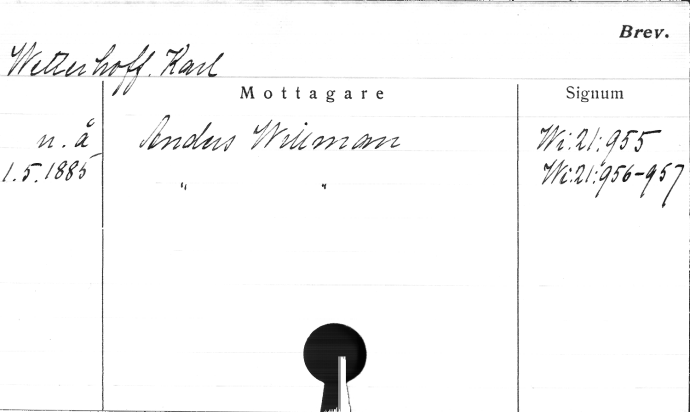 Brev.
Wetterhoff. Karl
Mottagare Signum
u. å Anders Willman Wi:21:955
1.5.1885 " " Wi:21:956-957